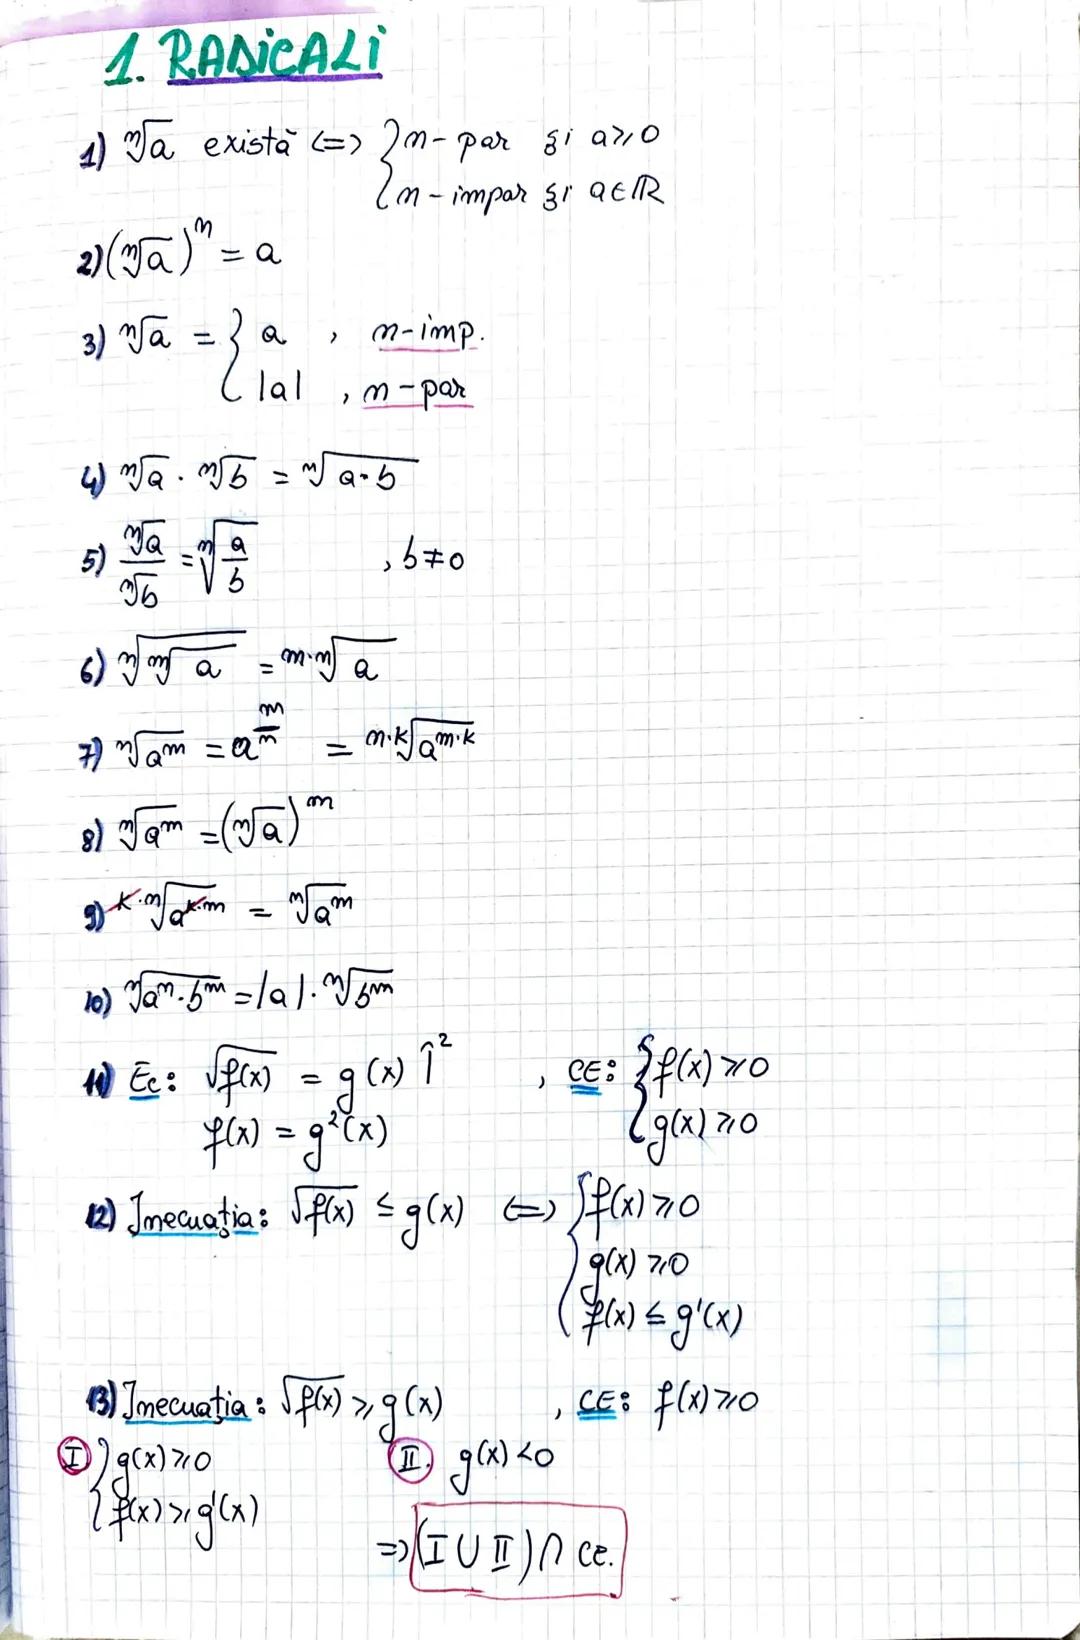 1. RADICALI
1) ⁿ√a există <=> { n - par și a ≥ 0
{ n - impar și a ∈ ℝ
2) (ⁿ√a)ⁿ = a
3) ⁿ√a = { a , n-imp.
{ |a| , n - par
4) ⁿ√a · ⁿ√b = ⁿ√(a·b)
5) ⁿ√a / ⁿ√b = ⁿ√(a/b) , b ≠ 0
6) ⁿ√(ᵐ√a) = ᵐ·ⁿ√a
7) ⁿ√(aᵐ) = a^(m/n) = ⁿ·ᵏ√(a^(m·k))
8) ⁿ√(aᵐ) = (ⁿ√a)ᵐ
9) ᵏ·ⁿ√(a^(k·m)) = ⁿ√(aᵐ)
10) ⁿ√(aⁿ·bᵐ) = |a|·ⁿ√(bᵐ)
11) Ec: √f(x) = g(x) ↑² , CE: { f(x) ≥ 0
f(x) = g²(x) { g(x) ≥ 0
12) Inecuația: √f(x) ≤ g(x) <=> { f(x) ≥ 0
g(x) ≥ 0
f(x) ≤ g'(x)
13) Inecuația: √f(x) ≥ g(x) , CE: f(x) ≥ 0
I { g(x) ≥ 0 II. g(x) < 0
{ f(x) ≥ g'(x)
=> (I ∪ II) ∩ CE.